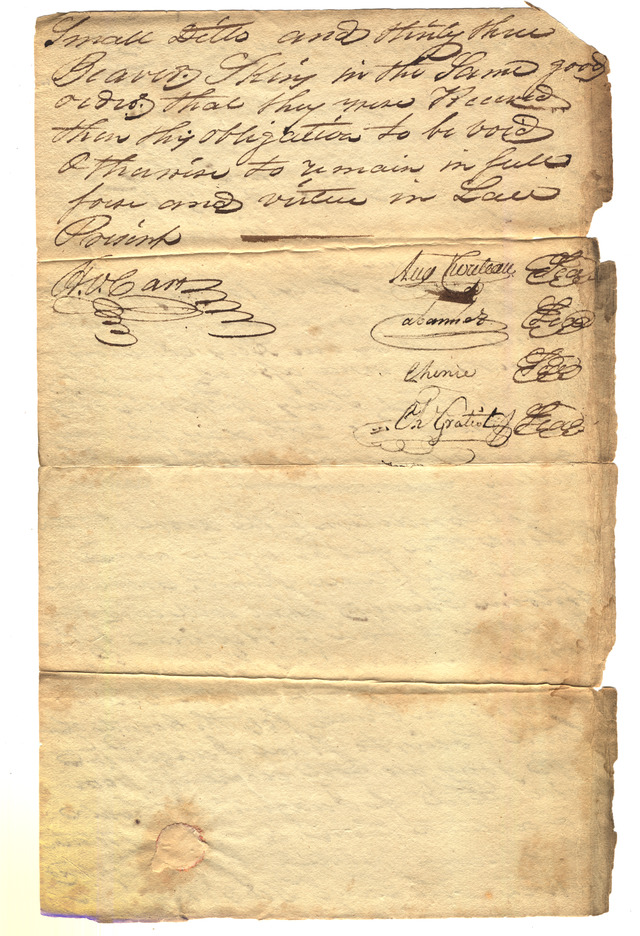 Small Ditto and thirty three
Beaver Skins in the Same good
order that they were Received
then this obligation to be void
Otherwise to remain in full
force and virtue in Law
Present
Aug Chouteau Seal
W. C. Carr
Cabanné Seal
Chenie Seal
Ch Gratiot Seal